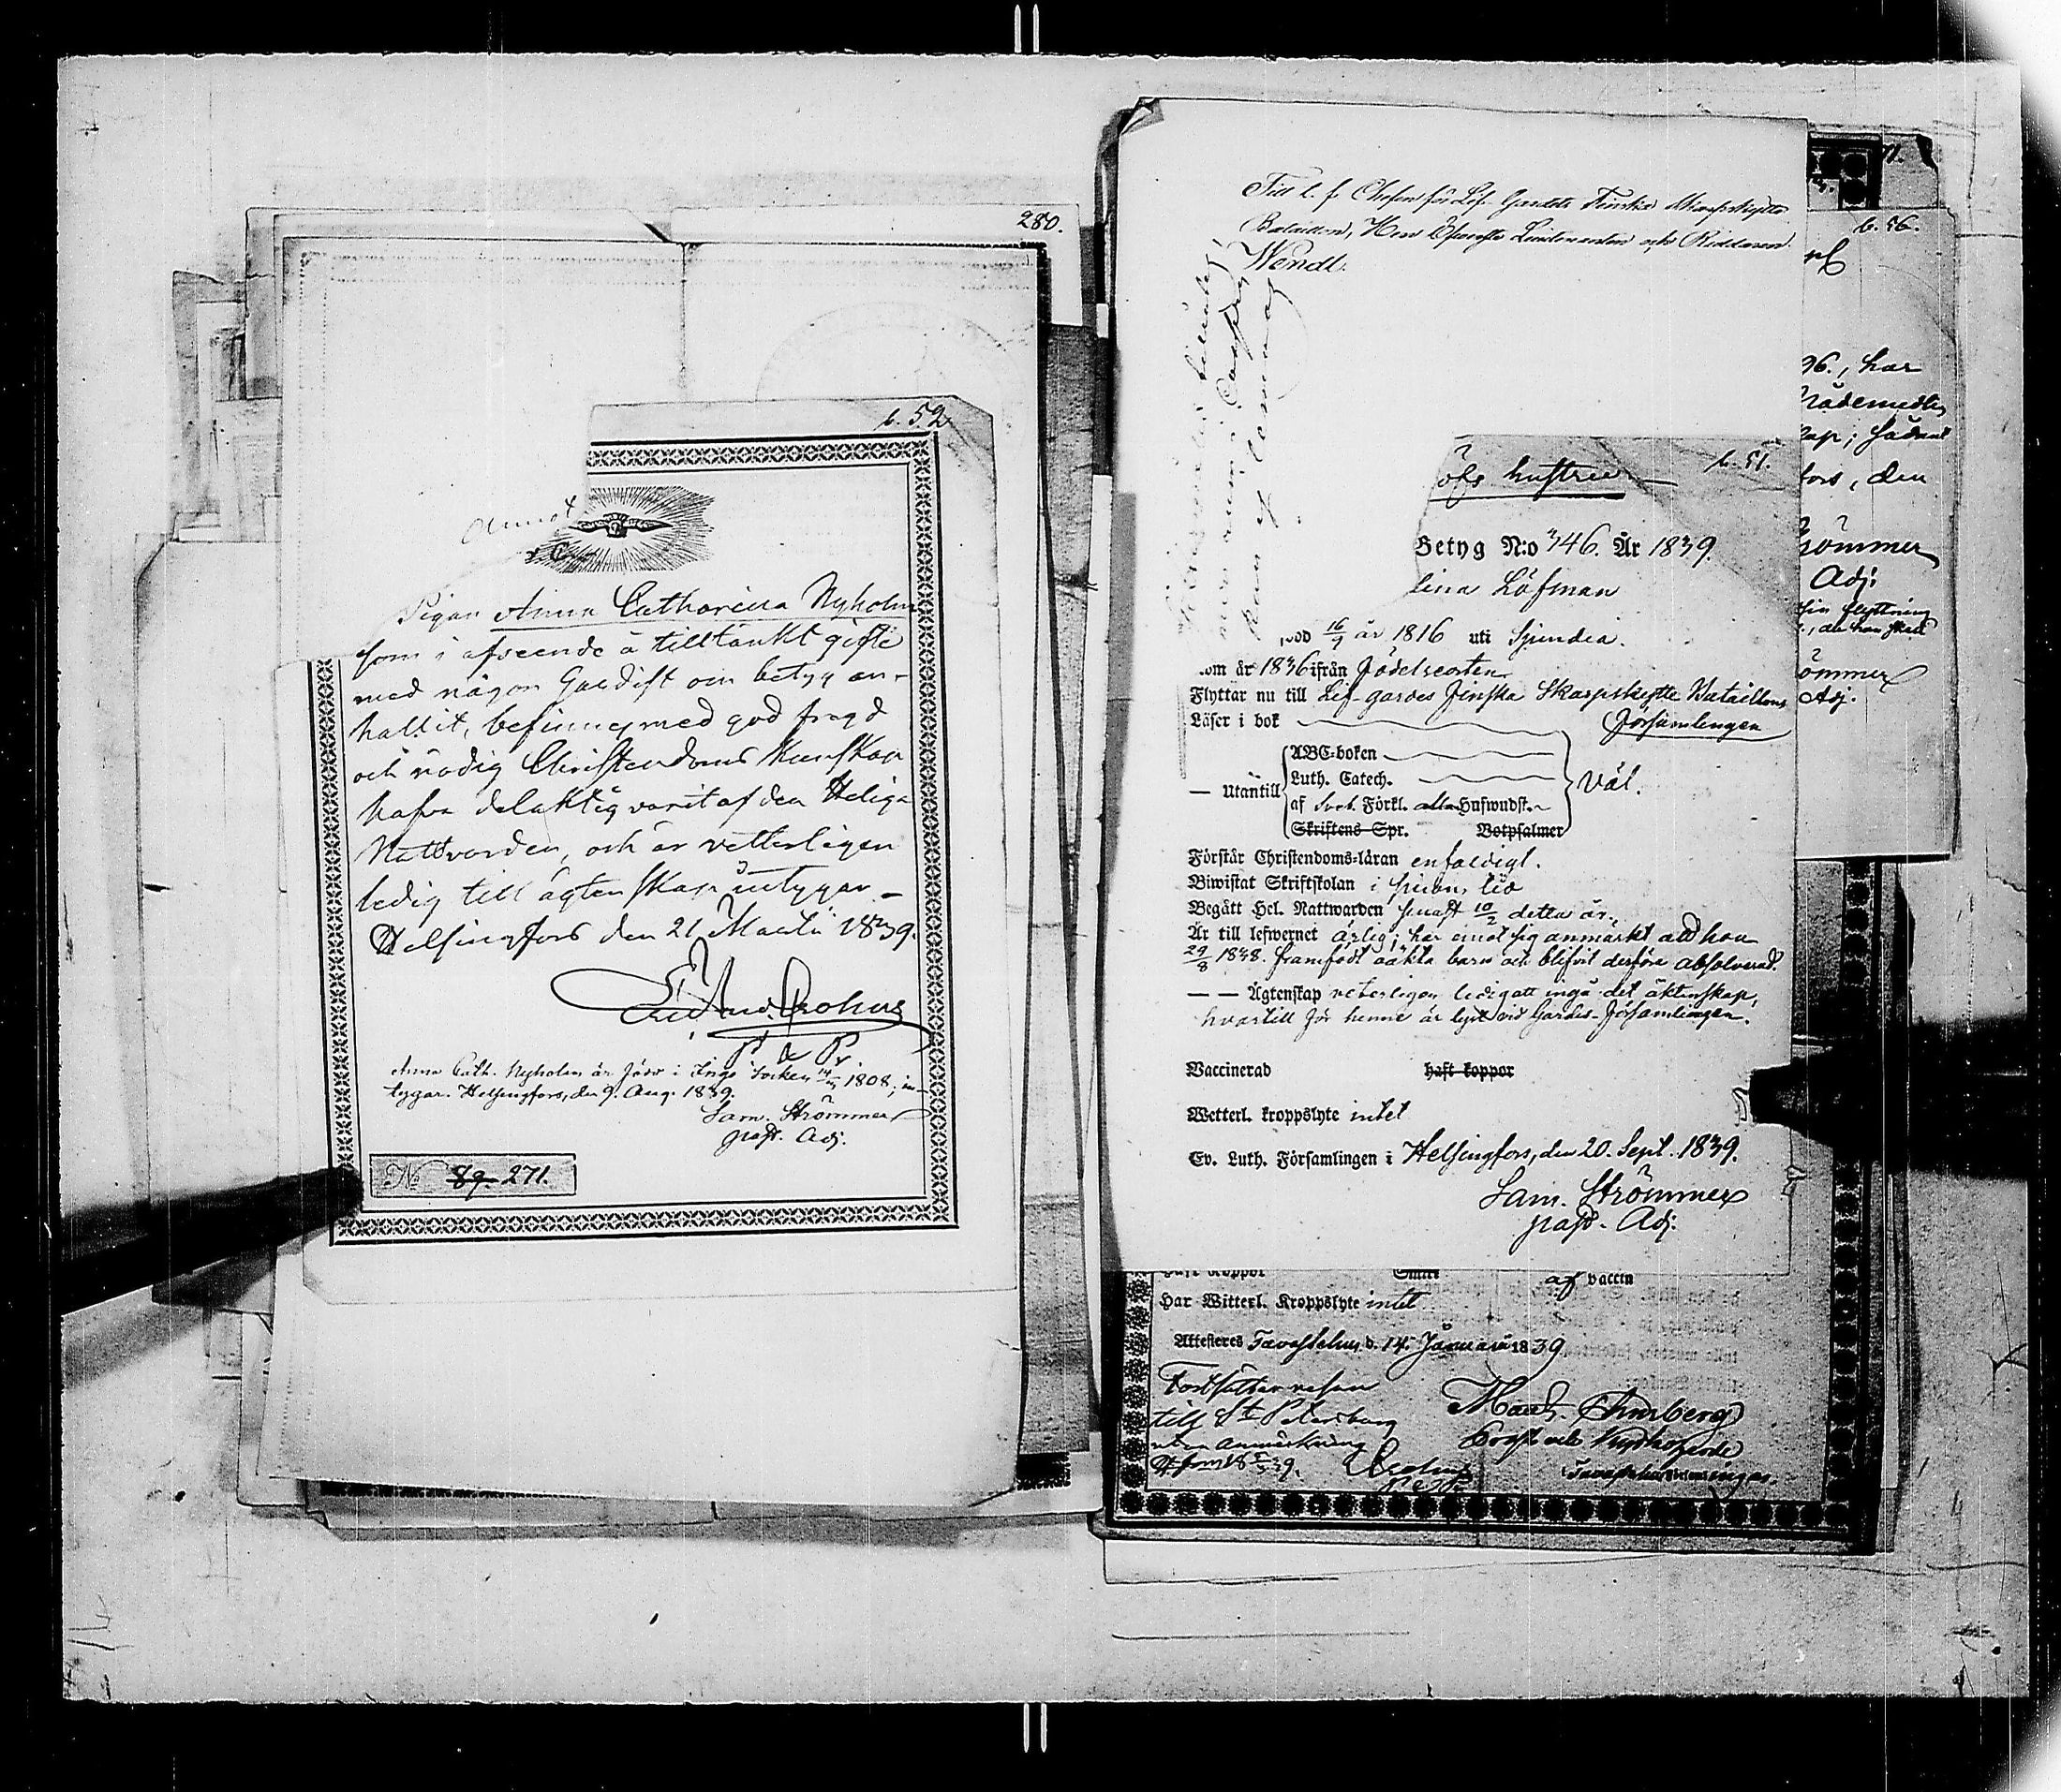 280.
b. 52
Pigan Anna Catharina Nyholm
som i afseende å tilltänkt gifte
med någon Gardist om betyg an-
hållit, befinnes med god frägd
och nödig Christendoms Kunskap
hafva delaktig varit af den Heliga
Nattvarden, och är vetterligen
ledig till ägtenskap intygar
Helsingfors den 21 Martii 1839.
Crohns
P & Pr.
Anna Cath. Nyholm är född i Ingo Socken 1808, in-
tygar. Helsingfors, den 9. Aug. 1839.
Sam. Strömmer
past. Adj.
No 89 271.
Till t. f. Chefen för Lif-Gardets Finska Skarpskytte
Bataillon, Herr Öfverste Lieutenanten och Riddaren
Wendt.
b. 51.
ofs hustru
Betyg N:o 346. År 1839.
lina Löfman
född 16/9 år 1816 uti Sjundeå.
om år 1836 ifrån Födelseorten
Flyttar nu till Lif-gardes Finska Skarpskytte Bataillons
Församlingen
Läser i bok
ABC-boken
Luth. Catech.
— Utantill
Väl.
af Sveb. Förkl. alla Hufwudst.
Skriftens Spr. Botpsalmer
Förstår Christendoms-läran enfaldigt.
Biwistat Skriftskolan i sinom tid
Begått Hel. Nattwarden senast 10/2 detta år.
Är till lefwernet ärlig; har emot sig anmärkt att hon
29/8 1838. framfödt oäkta barn och blifvit derföre absolverad.
— — Ägtenskap veterligen ledig att ingå det äktenskap,
hvartill för henne är lyst vid Gardes-församlingen.
Vaccinerad haft koppor
Wetterl. kroppslyte intet
Ev. Luth. Församlingen i Helsingfors, den 20. Sept. 1839.
Sam. Strömmer
past. Adj.
af vaccin
Har Witterl. Kroppslyte intet
Attesteres Tavastehus d. 14. Januarii 1839
Fortsätter resan
till St Petersburg
utan anmärkning
Prost och Kyrkoherde
b. 56.
96., har
Nådemedlen
kap; sådant
fors, den
Strömmer
Adj.
sin flyttning
Strömmer
Adj.